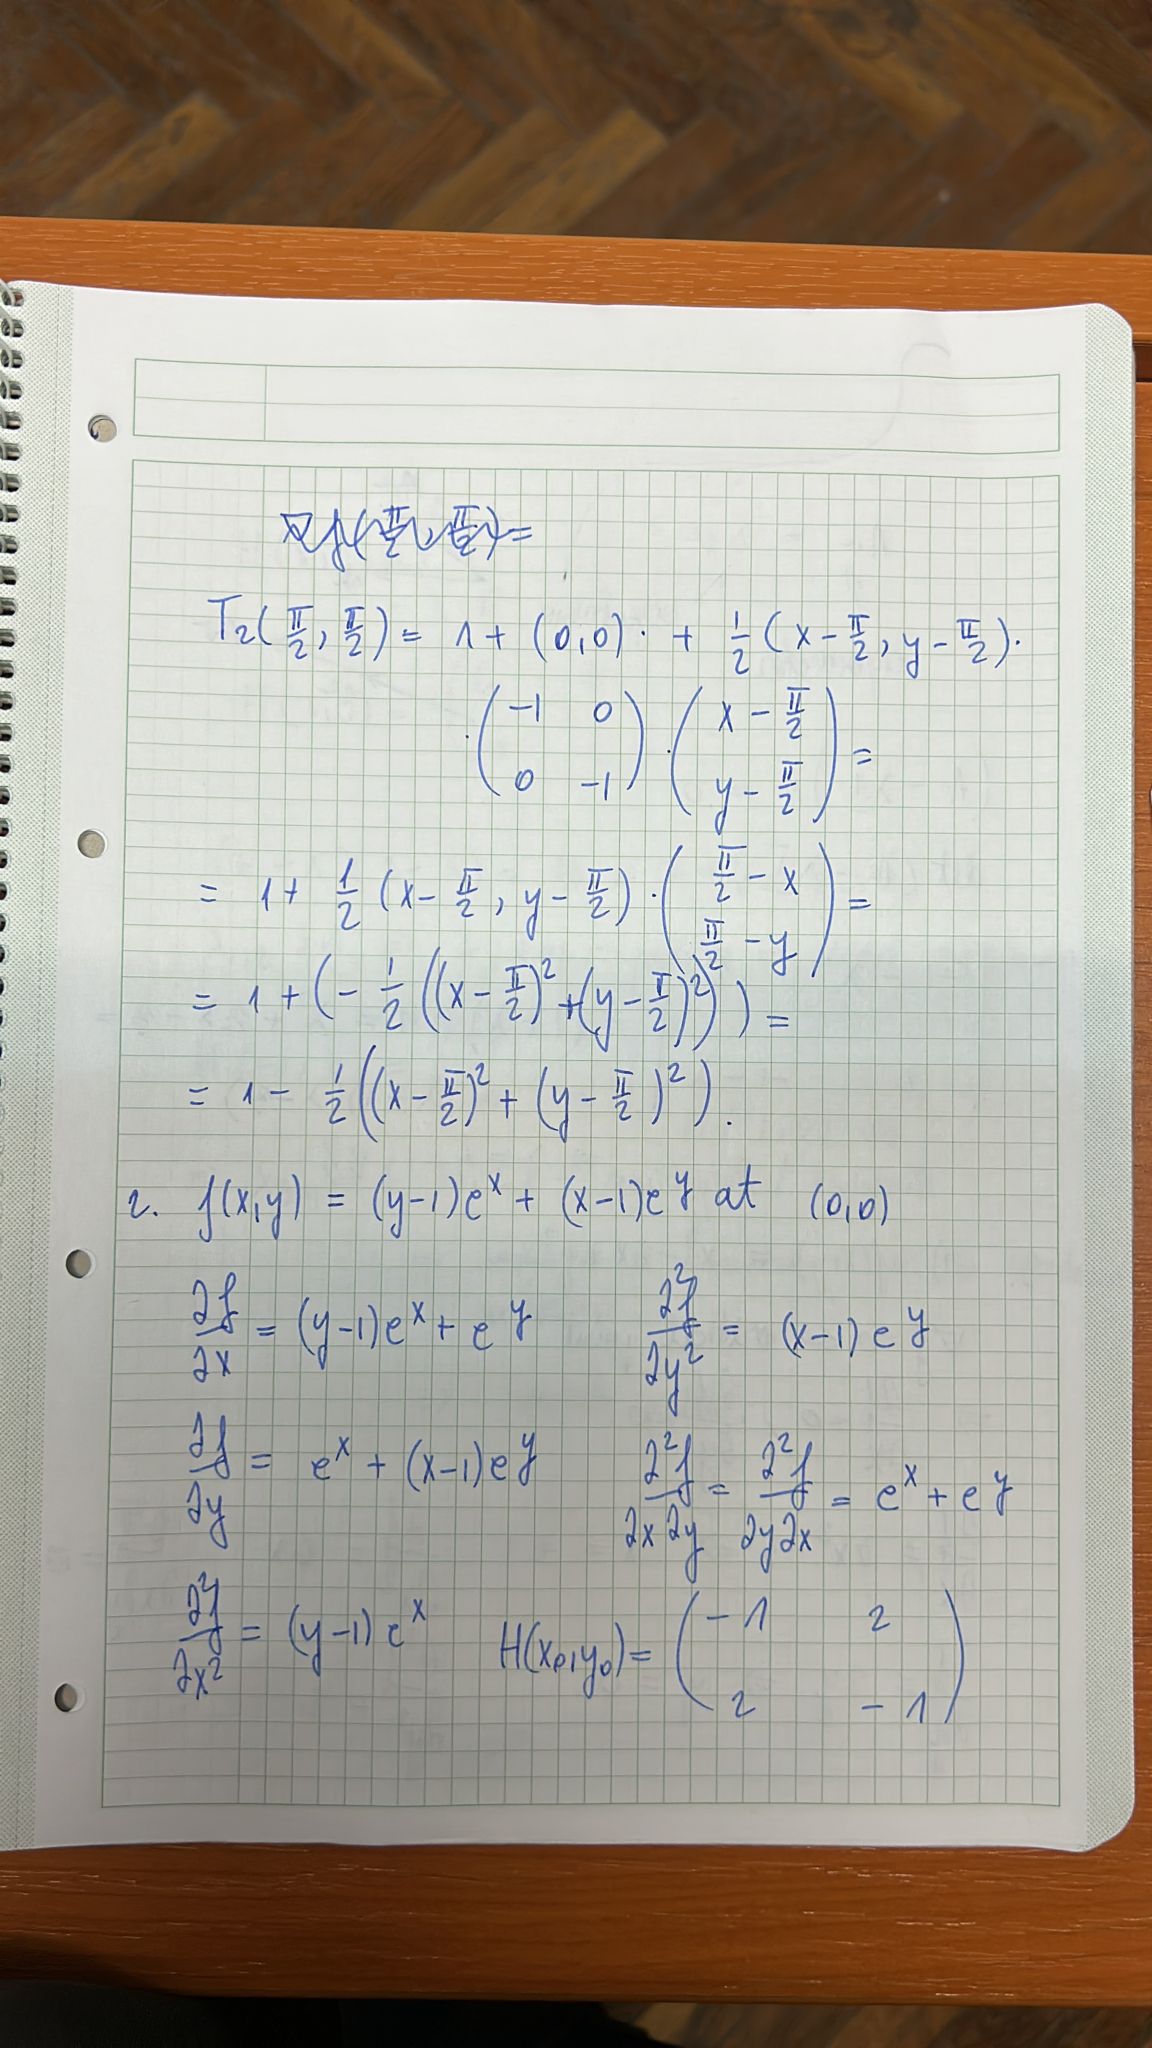 T₂(π/2, π/2) = 1 + (0,0) · + 1/2 (x − π/2, y − π/2) ·
· (−1 0; 0 −1) · (x − π/2; y − π/2) =
= 1 + 1/2 (x − π/2, y − π/2) · (π/2 − x; π/2 − y) =
= 1 + (− 1/2 ((x − π/2)² + (y − π/2)²)) =
= 1 − 1/2 ((x − π/2)² + (y − π/2)²).
2. f(x,y) = (y−1)eˣ + (x−1)eʸ at (0,0)
∂f/∂x = (y−1)eˣ + eʸ ∂²f/∂y² = (x−1)eʸ
∂f/∂y = eˣ + (x−1)eʸ ∂²f/∂x∂y = ∂²f/∂y∂x = eˣ + eʸ
∂²f/∂x² = (y−1)eˣ H(x₀,y₀) = (−1 2; 2 −1)